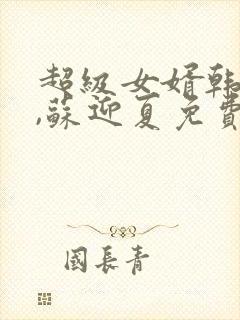 超級女婿韩
,蘇迎夏免費
國長青